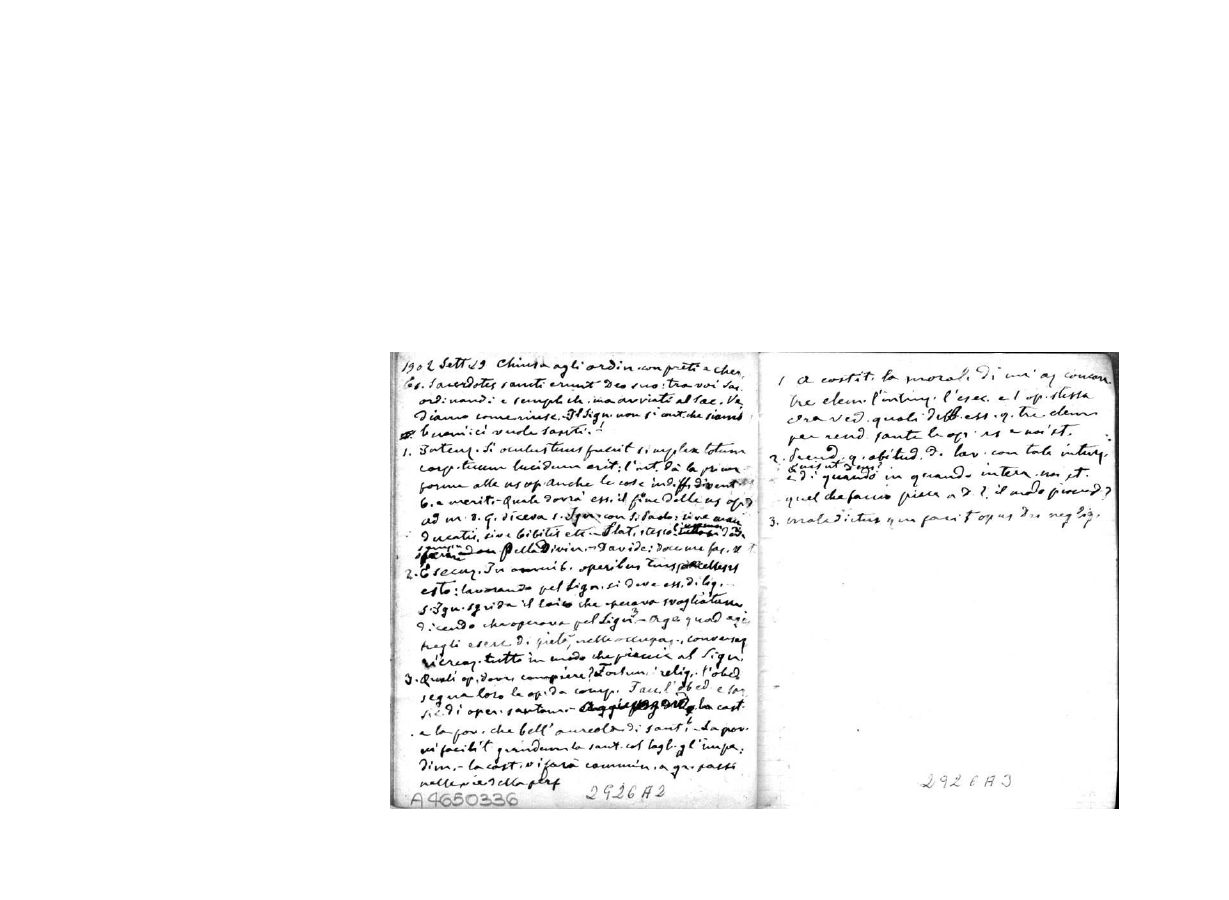 1902 Sett 29 Chiusa agli ordin. con preti e cher.
Sacerdotes sancti erunt Deo suo: tra voi sac.
ordinandi e semplich. ma avviati al sac. Ve
diamo come riusc. Il Sign. non si cont. che siamo
buoni: ci vuole santi.
1. Intenz. Si oculus tuus fuerit simplex totum
corp. tuum lucidum erit: l'int. dà la prima
forma alle ns op. Anche le cose indiff. divent
b. e merit. - Quale dovrà ess. il fine delle ns op.
ad m. D. G. diceva S. Ign. con S. Paolo: sive man
ducatis, sive bibitis etc -
della Divin. - Davide: Docere fac.
2. Esecuz. In omnib. operibus tuis praecellens
esto: lavorando pel Sign. si deve ess. dilig. -
S. Ign. sgrida il laico che operava svogliatam.
dicendo che operava pel Sign. - Age quod agis
negli eserc. di pietà, nelle occupaz., conversaz
ricreaz. tutto in modo che piaccia al Sign.
3. Quali op. dovr. compiere? Fortun. i relig. l'obed
segna loro le op. da comp.
di oper. santam. - la cast.
e la pov. che bell'aureola di santi! - La pov.
vi facilit. grandem. la sant. col togl. gl'impe.
dim. - la cast. vi farà cammin. a gr. passi
nelle vie della perf
A4650336 2926A2
1 A costit. la moral. di un' az concorr
tre elem. l'intenz. l'esec. e l'op. stessa
ora ved. quali debb. ess. q. tre elem
per rend. sante le op. ns e noi st.
2. Prend. q. abitud. di lav. con tale intenz.
e di quando in quando interr. noi st.
quel che faccio piace a D.? il modo piace a D?
3. maledictus qui facit opus Dei neglig.
2926A3